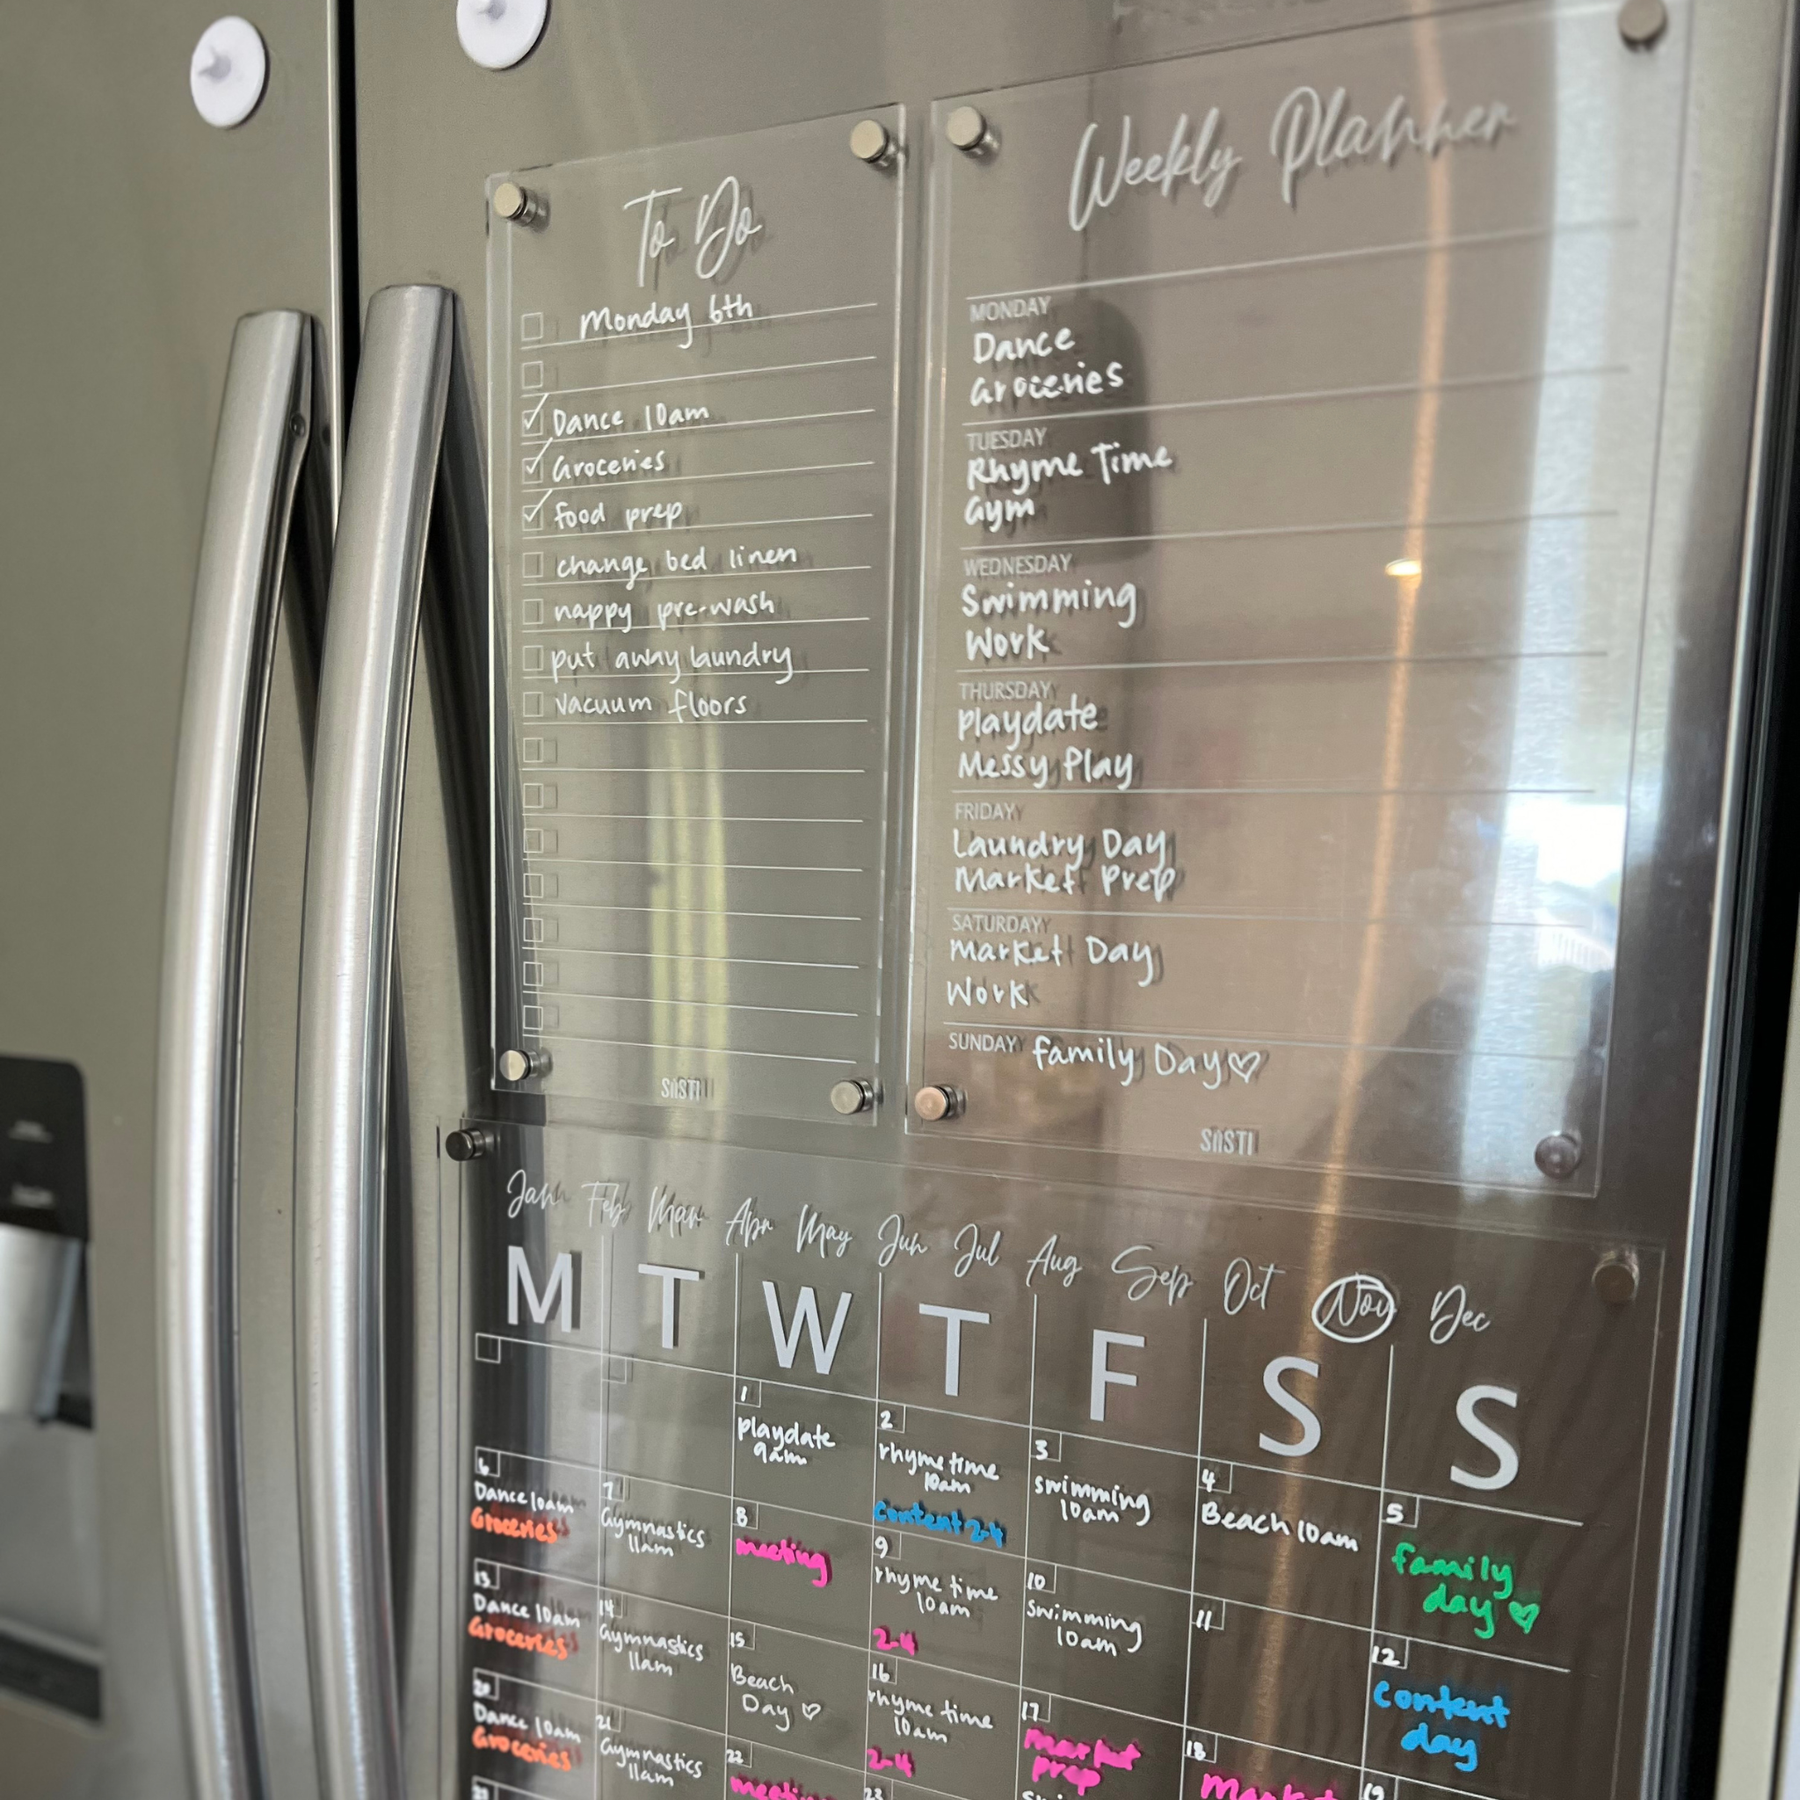 To Do
Monday 6th
Dance 10am
Groceries
food prep
change bed linen
nappy pre-wash
put away laundry
vacuum floors
SüSTI
Weekly Planner
MONDAY
Dance
Groceries
TUESDAY
Rhyme Time
Gym
WEDNESDAY
Swimming
Work
THURSDAY
Playdate
Messy Play
FRIDAY
Laundry Day
Market Prep
SATURDAY
Market Day
Work
SUNDAY Family Day♡
SüSTI
Jan Feb Mar Apr May Jun Jul Aug Sep Oct Nov Dec
M T W T F S S
1
playdate
9am
2
rhyme time
10am
Content 2-4
3
swimming
10am
4
Beach 10am
5
family
day ♡
6
Dance 10am
Groceries
7
Gymnastics
11am
8
meeting
9
rhyme time
10am
2-4
10
Swimming
10am
11
12
content
day
13
Dance 10am
Groceries
14
Gymnastics
11am
15
Beach
Day ♡
16
rhyme time
10am
2-4
17
market
prep
18
Market
19
20
Dance 10am
Groceries
21
Gymnastics
11am
22
23